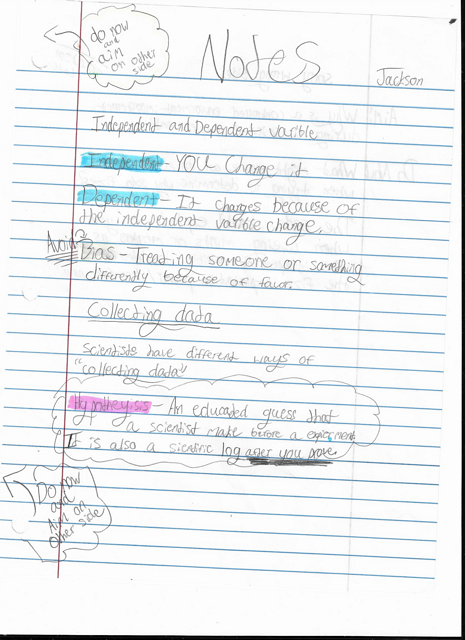 do now
and
aim
on other
side
Notes
Jackson
Independent and Dependent varible
Independent - YOU Change it
Dependent - It changes because of
the independent varible change.
Avoid
Bias - Treating someone or something
differently because of favor.
Collecting data
Scientists have different ways of
"collecting data"
Hypotheyisis - An educated guess that
a scientist make before a
It is also a log you prove
Do now
and
Aim on
other side